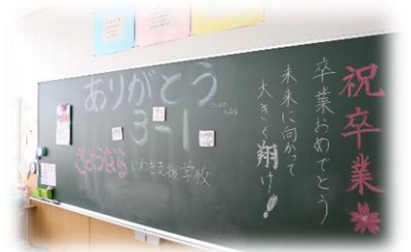 祝卒業
卒業おめでとう
未来に向かって
大きく翔け!
ありがとう
3-1
さようなら
いわき支援学校